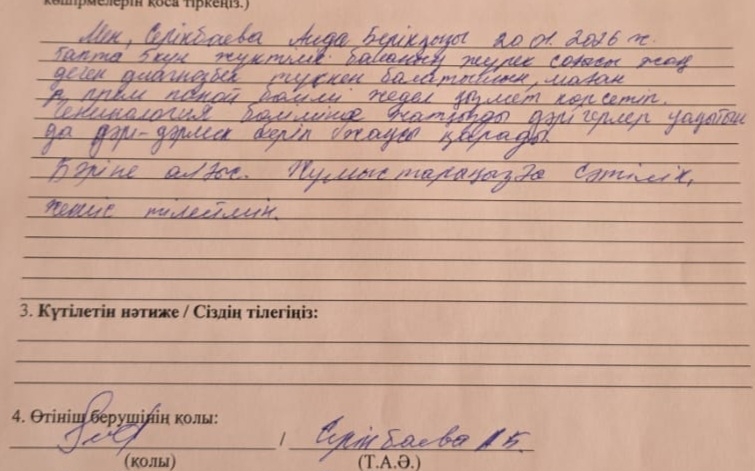 көшірмелерін қоса тіркеңіз.)
Мен, Серікбаева Аида Берікқызы 20 01. 2026 ж.
апта 5күн жүктілік баланың жүрек соғысы жоқ
деген диагнозбен түскен болатынмын, маған
бөлімі жедел қызмет көрсетіп.
Гинекология бөлімінде жатқанда дәрігерлер уақытын
да дәрі-дәрмек беріп жақсы қарады.
Бәріне алғыс. Жұмыстарыңызға сәттілік,
жеңіс тілеймін.
3. Күтілетін нәтиже / Сіздің тілегіңіз:
4. Өтініш берушінің қолы:
/ Серікбаева А Б.
(қолы) (Т.А.Ә.)